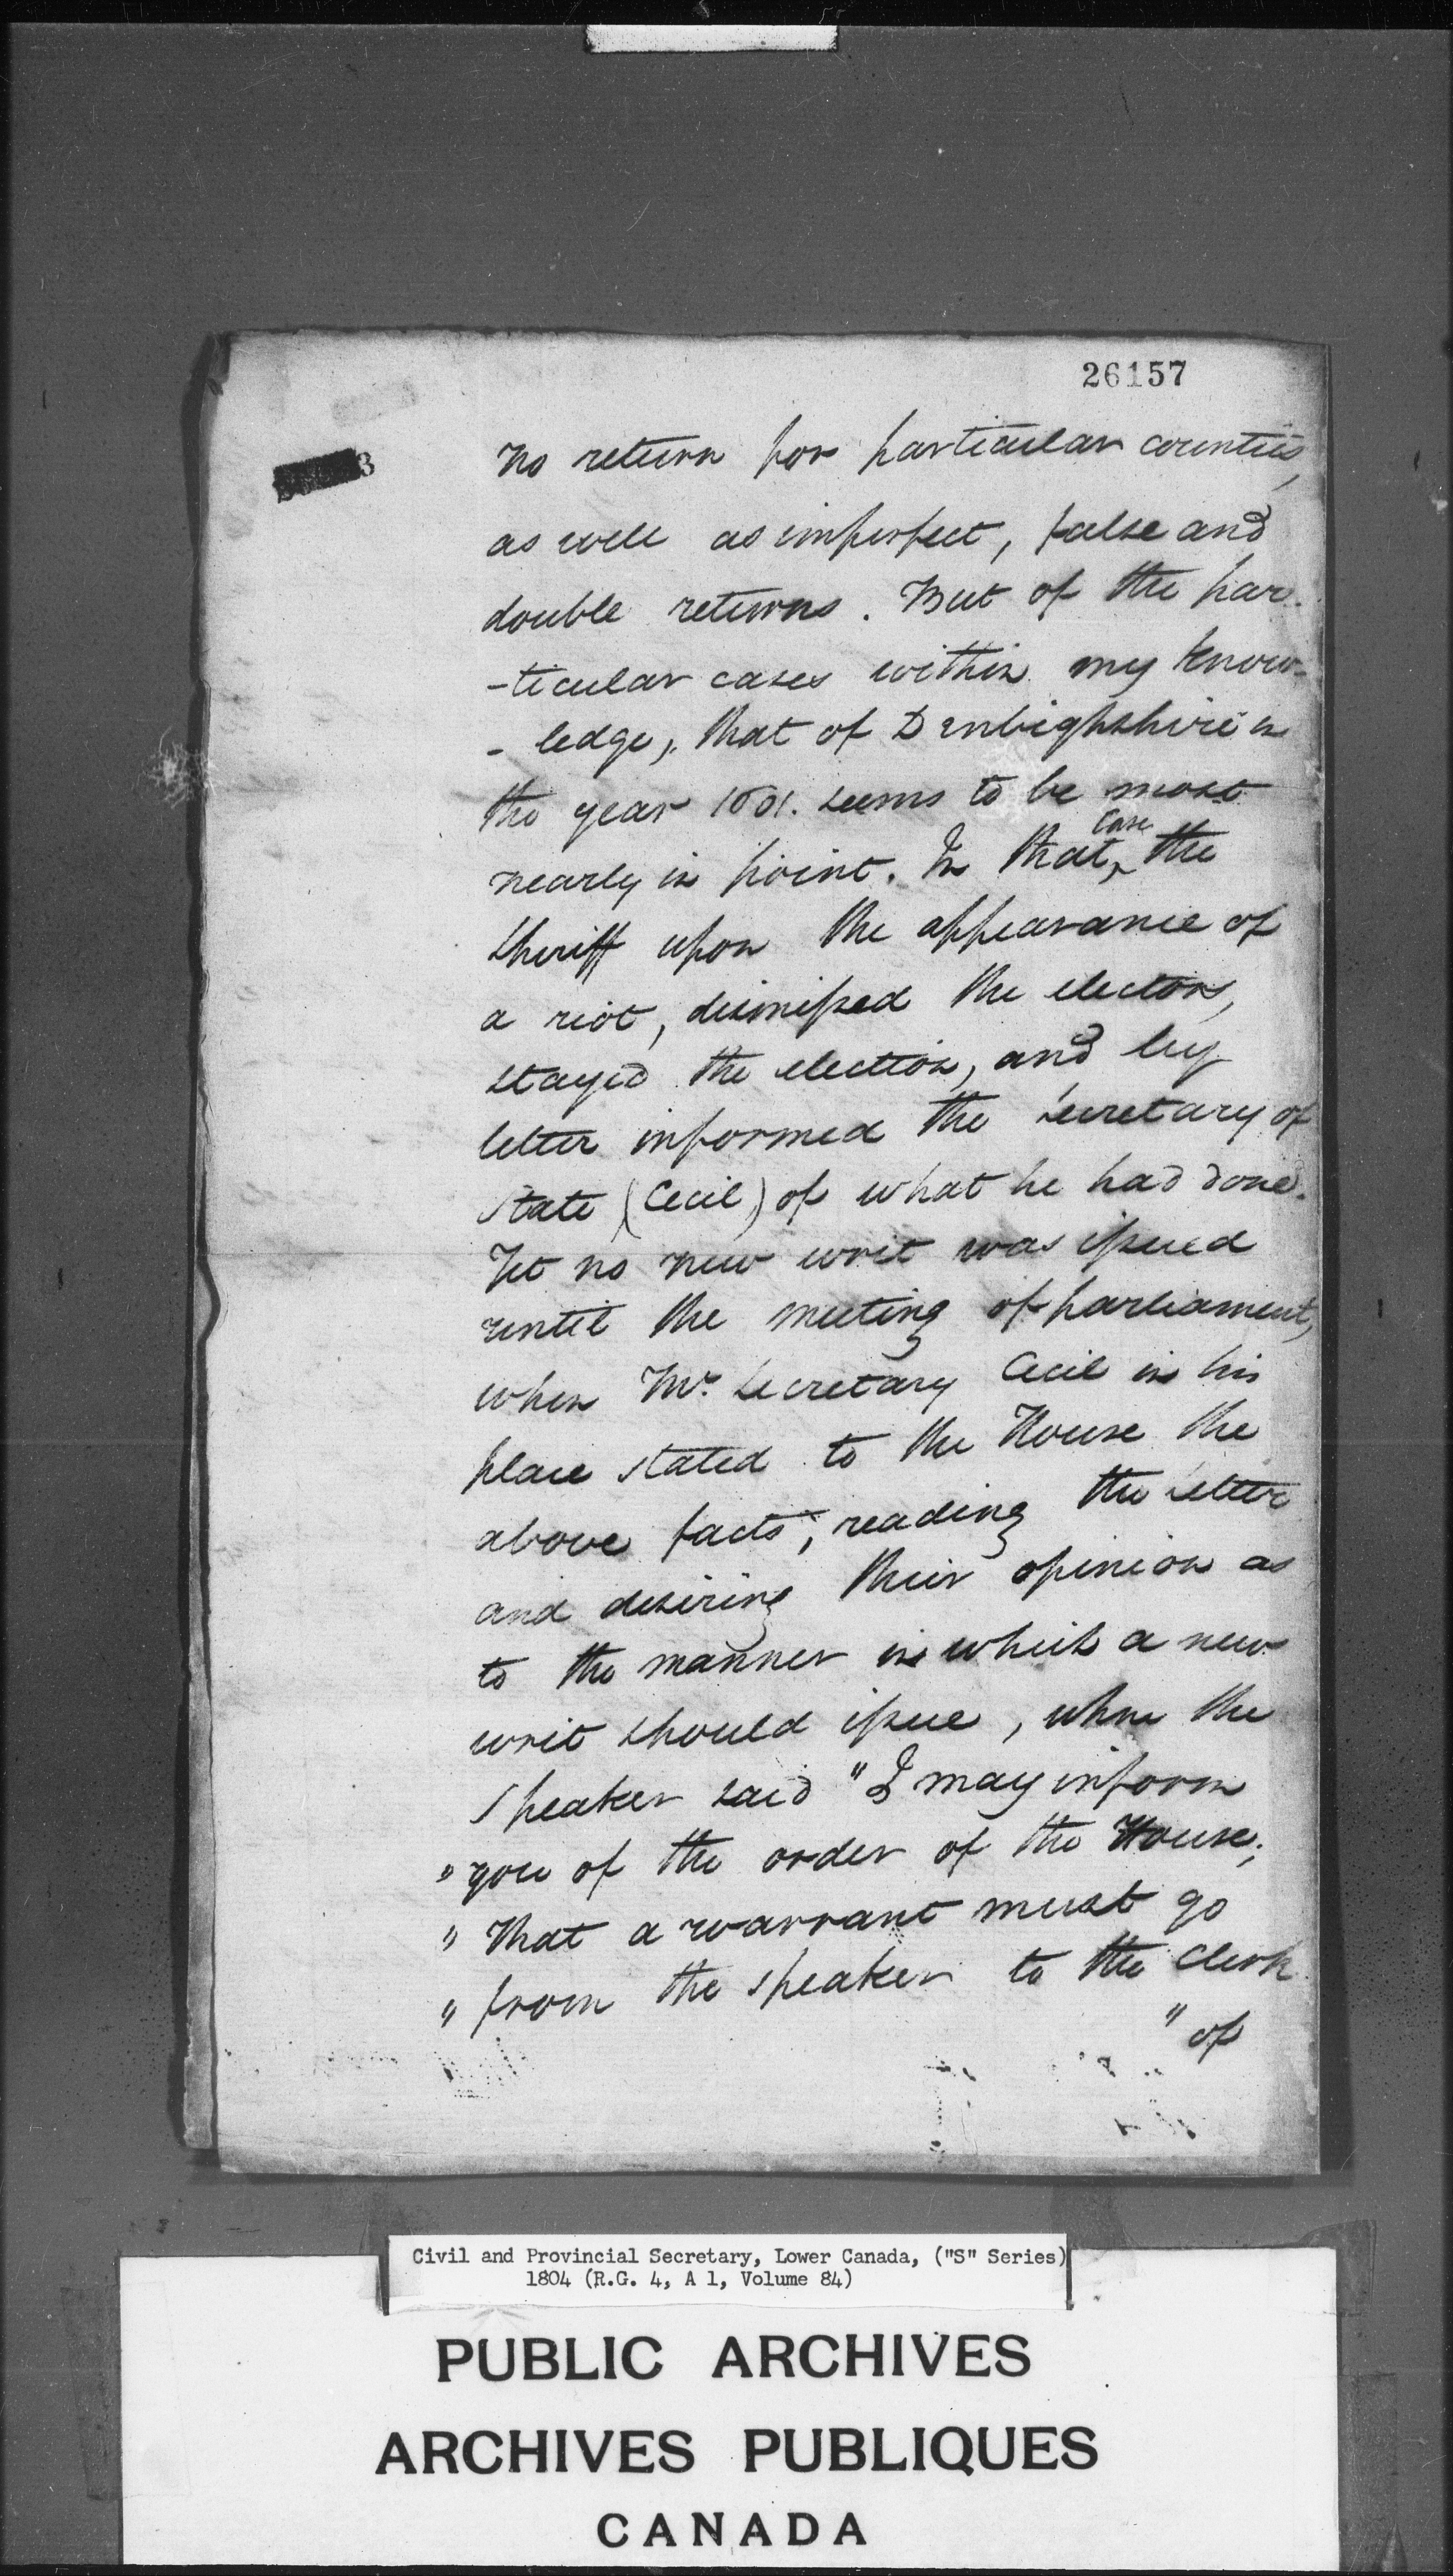 26157
3
no return for particular counties,
as well as imperfect, false and
double returns. But of the par-
-ticular cases within my know-
-ledge, that of Denbighshire in
the year 1601. seems to be most
nearly in point. In that, ^case the
sheriff upon the appearance of
a riot, dismissed the electors,
stayed the election, and by
letter informed the secretary of
state (Cecil) of what he had done.
Yet no new writ was issued
until the meeting of parliament,
when Mr. Secretary Cecil in his
place stated to the House the
above facts, reading the letter
and desiring their opinion as
to the manner in which a new
writ should issue, when the
Speaker said "I may inform
"you of the order of the House;
"that a warrant must go
"from the speaker to the Clerk
"of
Civil and Provincial Secretary, Lower Canada, ("S" Series)
1804 (R.G. 4, A 1, Volume 84)
PUBLIC ARCHIVES
ARCHIVES PUBLIQUES
CANADA